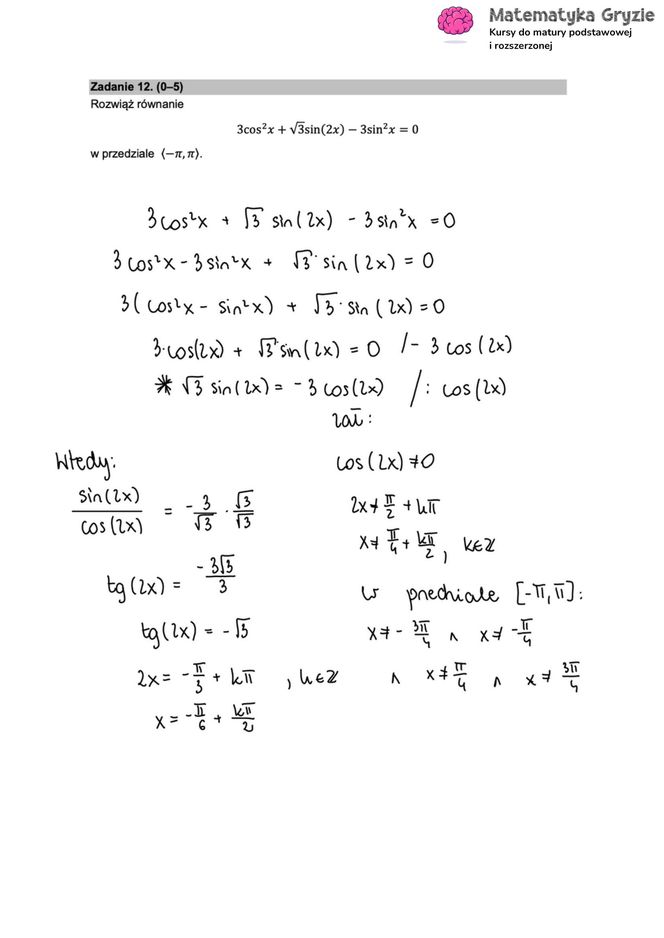 Matematyka Gryzie
Kursy do matury podstawowej
i rozszerzonej
Zadanie 12. (0–5)
Rozwiąż równanie
3cos²x + √3sin(2x) − 3sin²x = 0
w przedziale ⟨−π, π⟩.
3cos²x + √3 sin(2x) - 3 sin²x = 0
3 cos²x - 3 sin²x + √3 · sin(2x) = 0
3(cos²x - sin²x) + √3 · sin(2x) = 0
3·cos(2x) + √3·sin(2x) = 0 /- 3 cos(2x)
* √3 sin(2x) = -3 cos(2x) /: cos(2x)
zał:
Wtedy:
sin(2x)/cos(2x) = -3/√3 · √3/√3
tg(2x) = -3√3/3
tg(2x) = -√3
2x = -π/3 + kπ , k∈Z
x = -π/6 + kπ/2
cos(2x) ≠ 0
2x ≠ π/2 + kπ
x ≠ π/4 + kπ/2, k∈Z
w przedziale [-π, π]:
x ≠ -3π/4 ∧ x ≠ -π/4
∧ x ≠ π/4 ∧ x ≠ 3π/4